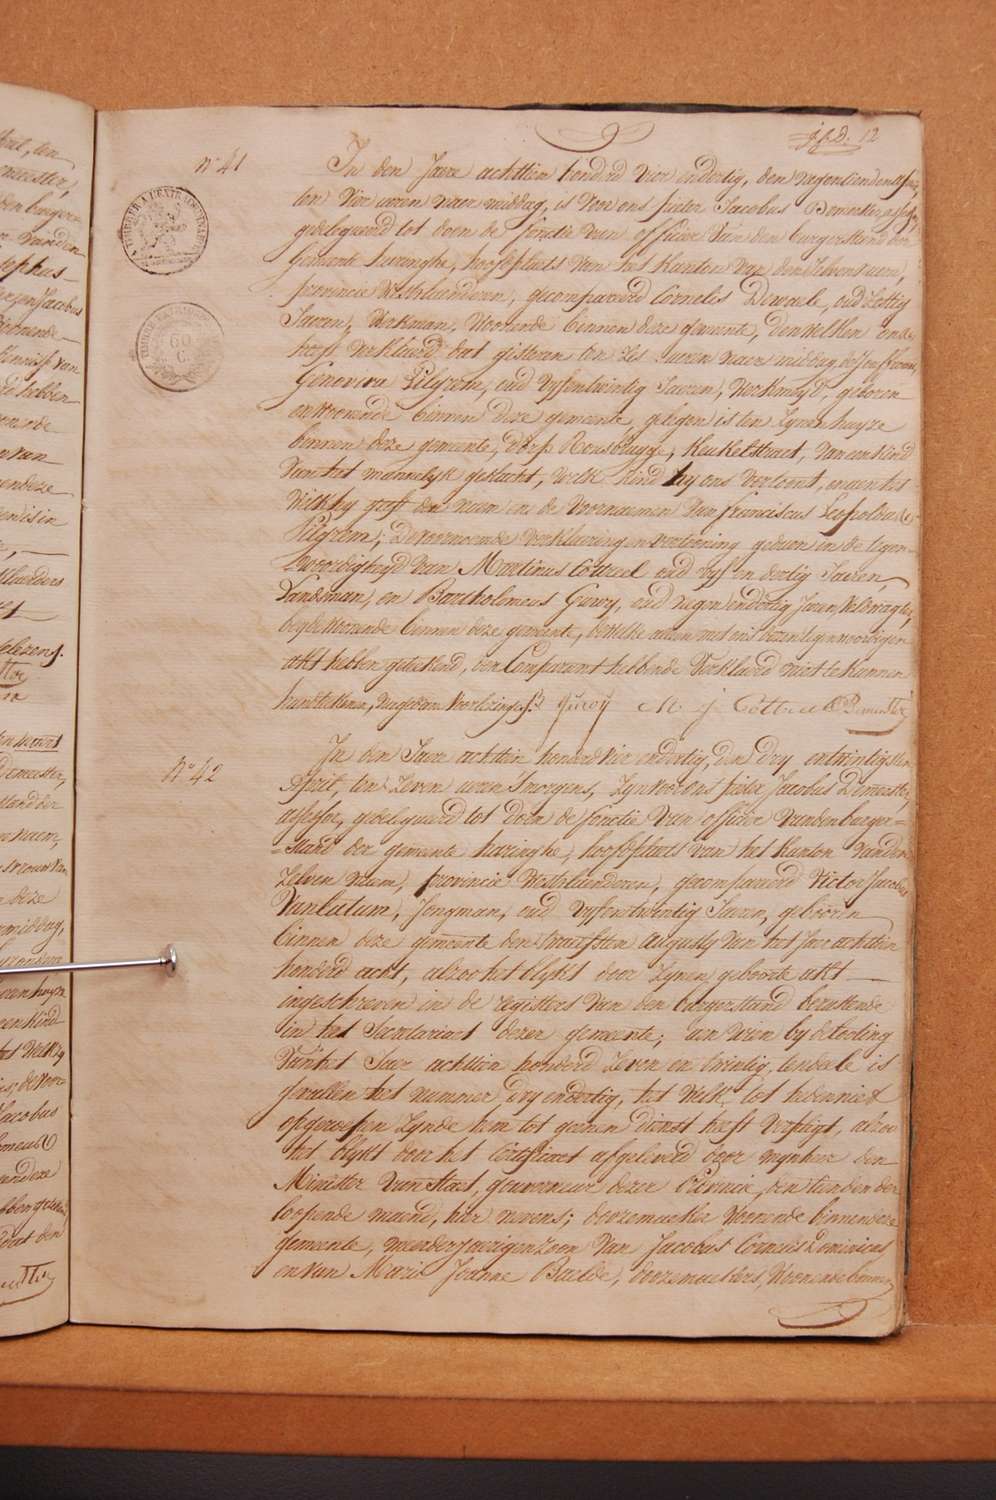 12
N° 41
In den Jaere achttien honderd vier en dertig, den negentienden april,
ten vier uren naer middag, is voor ons pieter Jacobus Demeester, assessor,
gedelegueerd tot doen de fonctie van officier van den burgerstand der
gemeente haringhe, hoofdplaets van het kanton van den zelven naem,
provincie Westvlaenderen, gecompareerd Cornelis Dewaele, oud zestig
Jaeren, Werkman, woonende binnen deze gemeente, denwelken ons
heeft verklaerd dat gisteren ten zes uren naer middag
Genoveva Pilgrem, oud vyfentwintig Jaeren, werkmeyd, geboren
en woonende binnen deze gemeente, gelegen is ten zynen huyze
binnen deze gemeente, dorp Rousbrugge, Keukelstraet, van een kind
van het mannelyk geslacht, welk kind hy ons vertoont, en aen het
welk hy geeft den naem en de voornaemen van franciscus Leopoldus
Pilgrem; de voornoemde verklaering en vertooning gedaen in de tegen-
woordigheyd van Martinus Cottreel oud vyf en dertig Jaeren,
Landsman, en Bartholomeus Gewy, oud negen en dertig Jaeren, veldwagter,
beyde woonende binnen deze gemeente, dewelke neven ons tegenwoordigen
akt hebben geteekend, den Comparant hebbende verklaerd niet te kunnen
handteekenen, naer gedaen voorlezing. M. J. Cottreel Demeester
N° 42
In den Jaere achttien honderd vier en dertig, den dry entwintigsten
April, ten zeven uren 's morgens, zyn voor ons pieter Jacobus Demeester,
assessor, gedelegueerd tot doen de fonctie van officier van den burger=
=stand der gemeente haringhe, hoofdplaets van het kanton van den
zelven naem, provincie Westvlaenderen, gecompareerd Victor Jacobus
Vanlatum, Jongman, oud vyfentwintig Jaeren, geboren
binnen deze gemeente den twaelfsten Augusty van het Jaer achttien
honderd acht, alzoo het blykt door zynen geboorte akt
ingeschreven in de registers van den burgerstand berustende
in het Secretariaet dezer gemeente; aen wien by de loting
van het Jaer achttien honderd zeven en twintig, ten deele is
gevallen het nummer dry en dertig, het welk tot heden niet
opgeroepen zynde hem tot geenen dienst heeft verpligt, alzoo
het blykt door het certificaet afgeleverd door mynheer den
Minister van Staet, gouverneur dezer Provincie, den tienden der
loopende maend, hier nevens; dooremaeker woonende binnen deze
gemeente, meerderjaerigen zoon van Jacobus Cornelis Dominicus
en van Marie Joanne Baelde, dooremaekers, woonende binnen